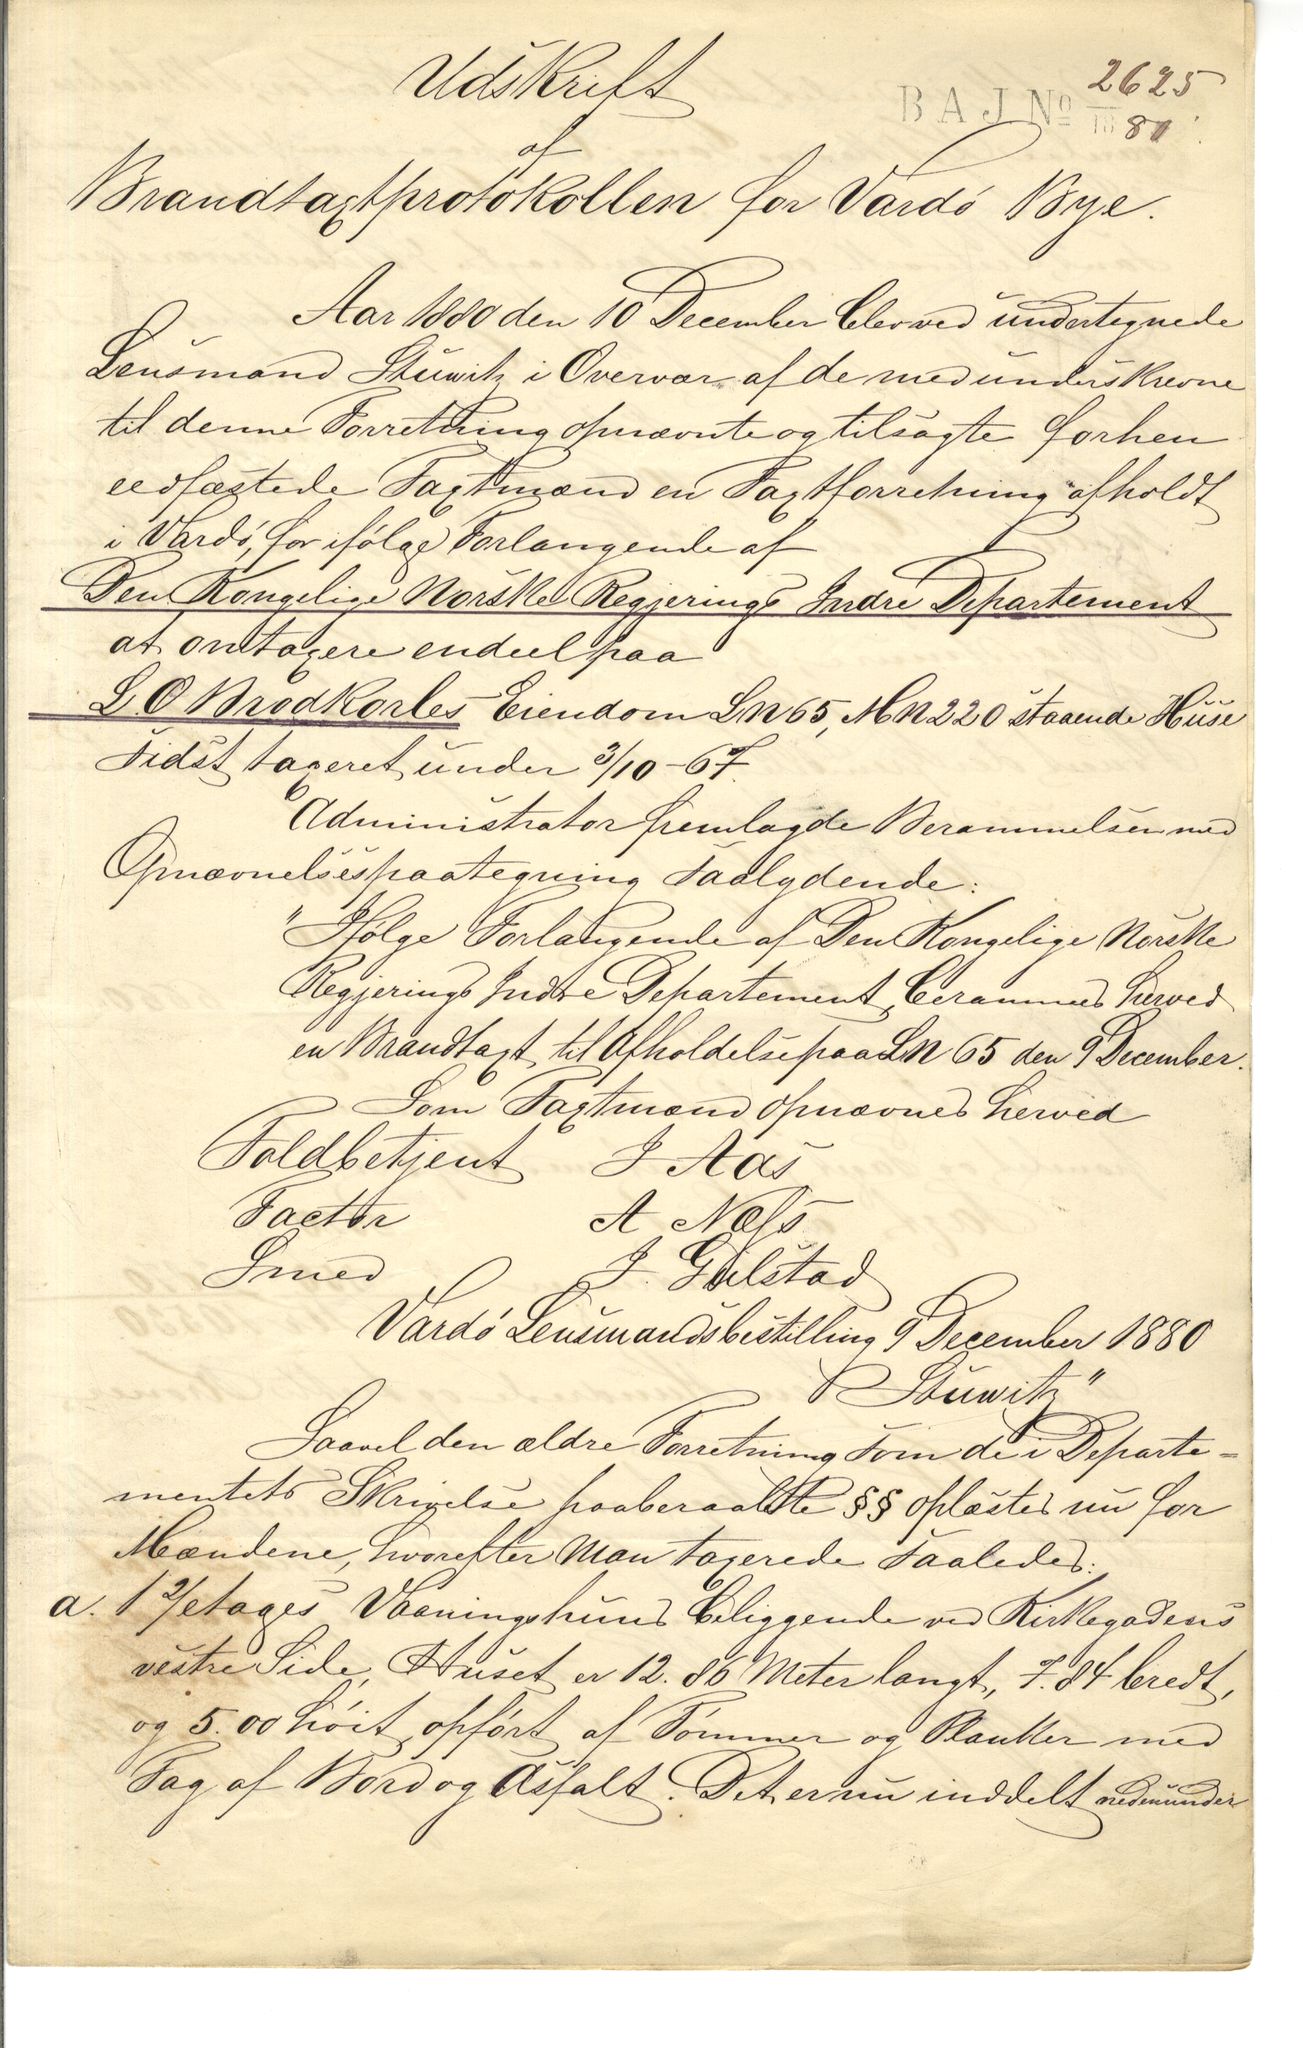 Udskrift
BAJNo 2625
1881
af
Brandtaxtprotokollen for Vardö Bye.
Aar 1880 den 10 December blev ved undertegnede
Lensmand Stuwitz i Overvær af de medunderskrevne
til denne Forretning opnævnte og tilsagte forhen
eedfæstede Taxtmænd en Taxtforretning afholdt
i Vardö, for ifölge Forlangende af
Den Kongelige Norske Regjerings Indre Departement
at omtaxere endeel paa
L O Brodkorbs Eiendom LN 65, MN 220 staaende Huse
sidst taxeret under 3/10-67.
Administrator fremlagde Berammelsen med
Opnævnelsespaategning saalydende:
"Ifölge Forlangende af Den Kongelige Norske
Regjerings Indre Departement berammes herved
en Brandtaxt til Afholdelse paa LN 65 den 9 December.
Som Taxtmænd opnævnes herved
Toldbetjent J Aas
Factor A Næss
Smed J. Gulstad
Vardö Lensmandsbestilling 9 December 1880
Stuwitz"
Saavel den ældre Forretning som de i Departe-
mentets Skrivelse paaberaabte §§ oplæstes nu for
Mændene, hvorefter Man taxerede saaledes:
a. 1 2/etages Vaaningshuus beliggende ved Kirkegadens
vestre Side, Huset er 12.86 Meter langt, 7.84 bredt,
og 5.00 höit, opfört af Tömmer og Planker med
Tag af Bord og Asfalt. Det er nu inddelt nedenunder